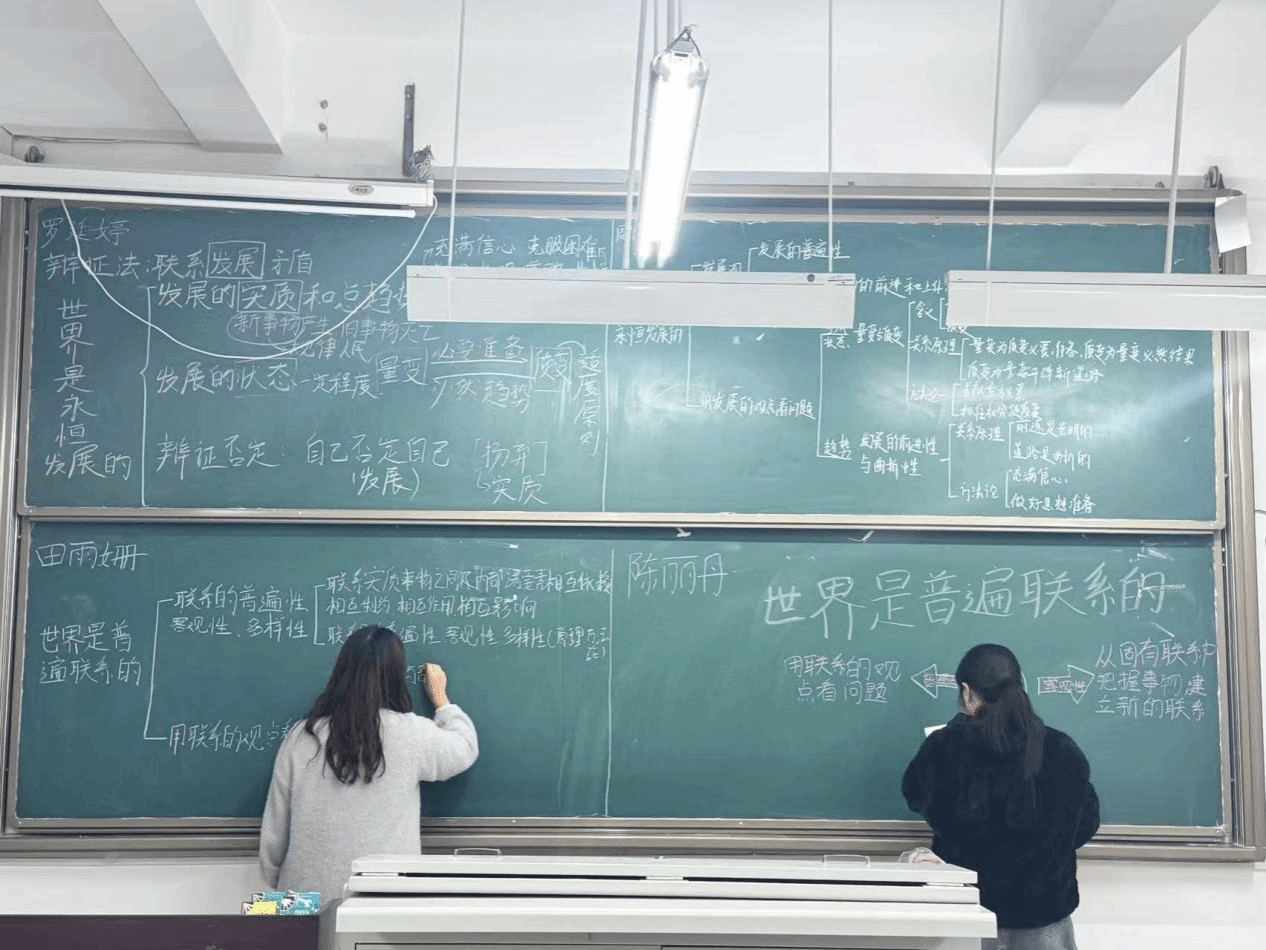 罗廷婷
辩证法:联系 发展 矛盾
世界是永恒发展的
发展的实质和总趋
新事物产生 旧事物灭亡
规律
发展的状态 一定程度 量变
必要准备
必然趋势
质变
适度原则
辩证否定: 自己否定自己
发展)
[扬弃]
实质
充满信心 克服困难
发展的普遍性
永恒发展的
用发展的观点看问题
的前进和上升
状态 量变与质变
含义
关系原理
量变为质变必要准备,质变为量变必然结果
质变为量变开辟新道路
方法论
重视量积累
抓住机会促质变
趋势 发展的前进性
与曲折性
关系原理
前途是光明的
道路是曲折的
方法论
充满信心
做好思想准备
田雨姗
世界是普
遍联系的
联系的普遍性
客观性、多样性
联系实质事物之间及内部诸要素相互依赖
相互制约 相互作用 相互影响
遍性、客观性、多样性(原理方法
论)
用联系的观点
陈丽丹
世界是普遍联系的
用联系的观
点看问题
客观性
从固有联系中
把握事物,建
立新的联系